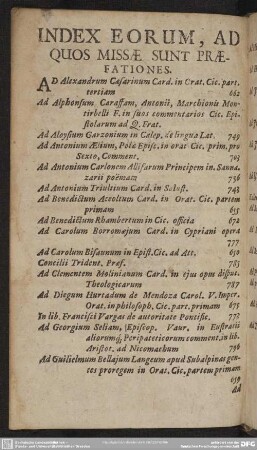 INDEX EORUM, AD
QUOS MISSÆ SUNT PRÆ-
FATIONES.
AD Alexandrum Cæsarinum Card. in Orat. Cic. part.
tertiam 662
Ad Alphonsum Caraffam, Antonii, Marchionis Mon-
tirbelli F. in suos commentarios Cic. Epi-
stolarum ad Q. Frat.
Ad Aloysium Garzonium in Calep. de lingua Lat. 749
Ad Antonium Ælium, Polæ Episc. in orat Cic. prim. pro
Sexto, Comment. 703
Ad Antonium Carlonem Allifarum Principem in. Sanna-
zarii poëmata 736
Ad Antonium Triultium Card. in Salust. 748
Ad Benedictum Accoltum Card. in Orat. Cic. partem
primam 655
Ad Benedictum Rhambertum in Cic. officia 672
Ad Carolum Borromæjum Card. in Cypriani opera
777
Ad Carolum Bisaunum in Epist. Cic. ad Att. 650
Concilii Trident. Præf. 785
Ad Clementem Molinianum Card. in ejus opus disput.
Theologicarum 787
Ad Diegum Hurtadum de Mendoza Carol. V. Imper.
Orat. in philosoph. Cic. part. primam 675
In lib. Francisci Vargas de autoritate Pontific. 773
Ad Georgium Seliam, Episcop. Vaur. in Eustratii
aliorumq; Peripateticorum comment. in lib.
Aristot. ad Nicomachum 796
Ad Guilielmum Bellajum Langeum apud Subalpinas gen-
tes proregem in Orat. Cic. partem primam
659
Ad